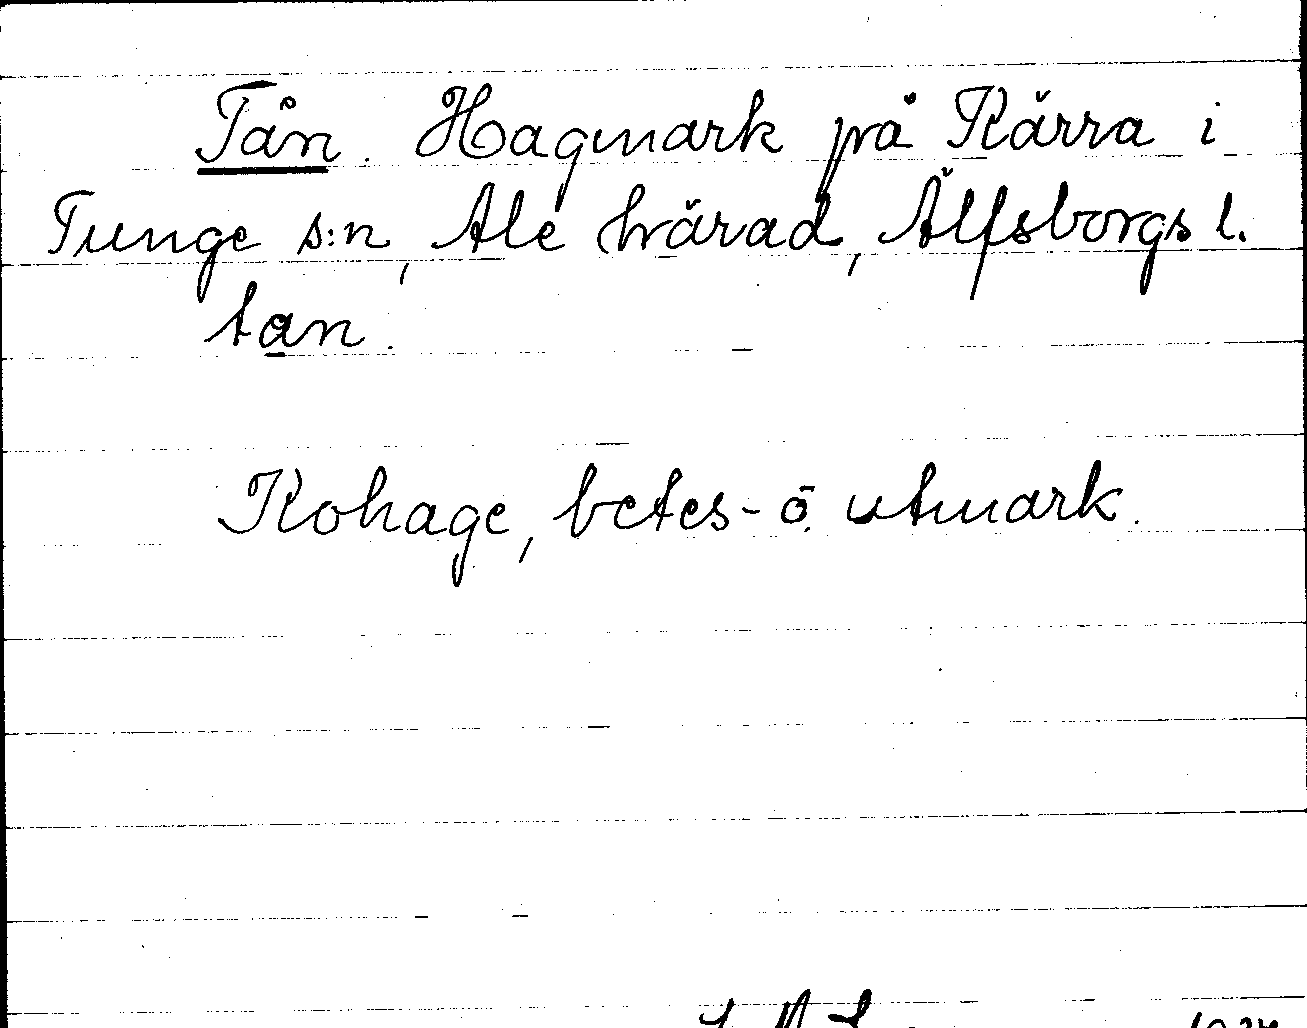 Tån. Hagmark på Kärra i
Tunge s:n, Ale härad, Älfsborgs l.
tan.
Kohage, betes- o. utmark.